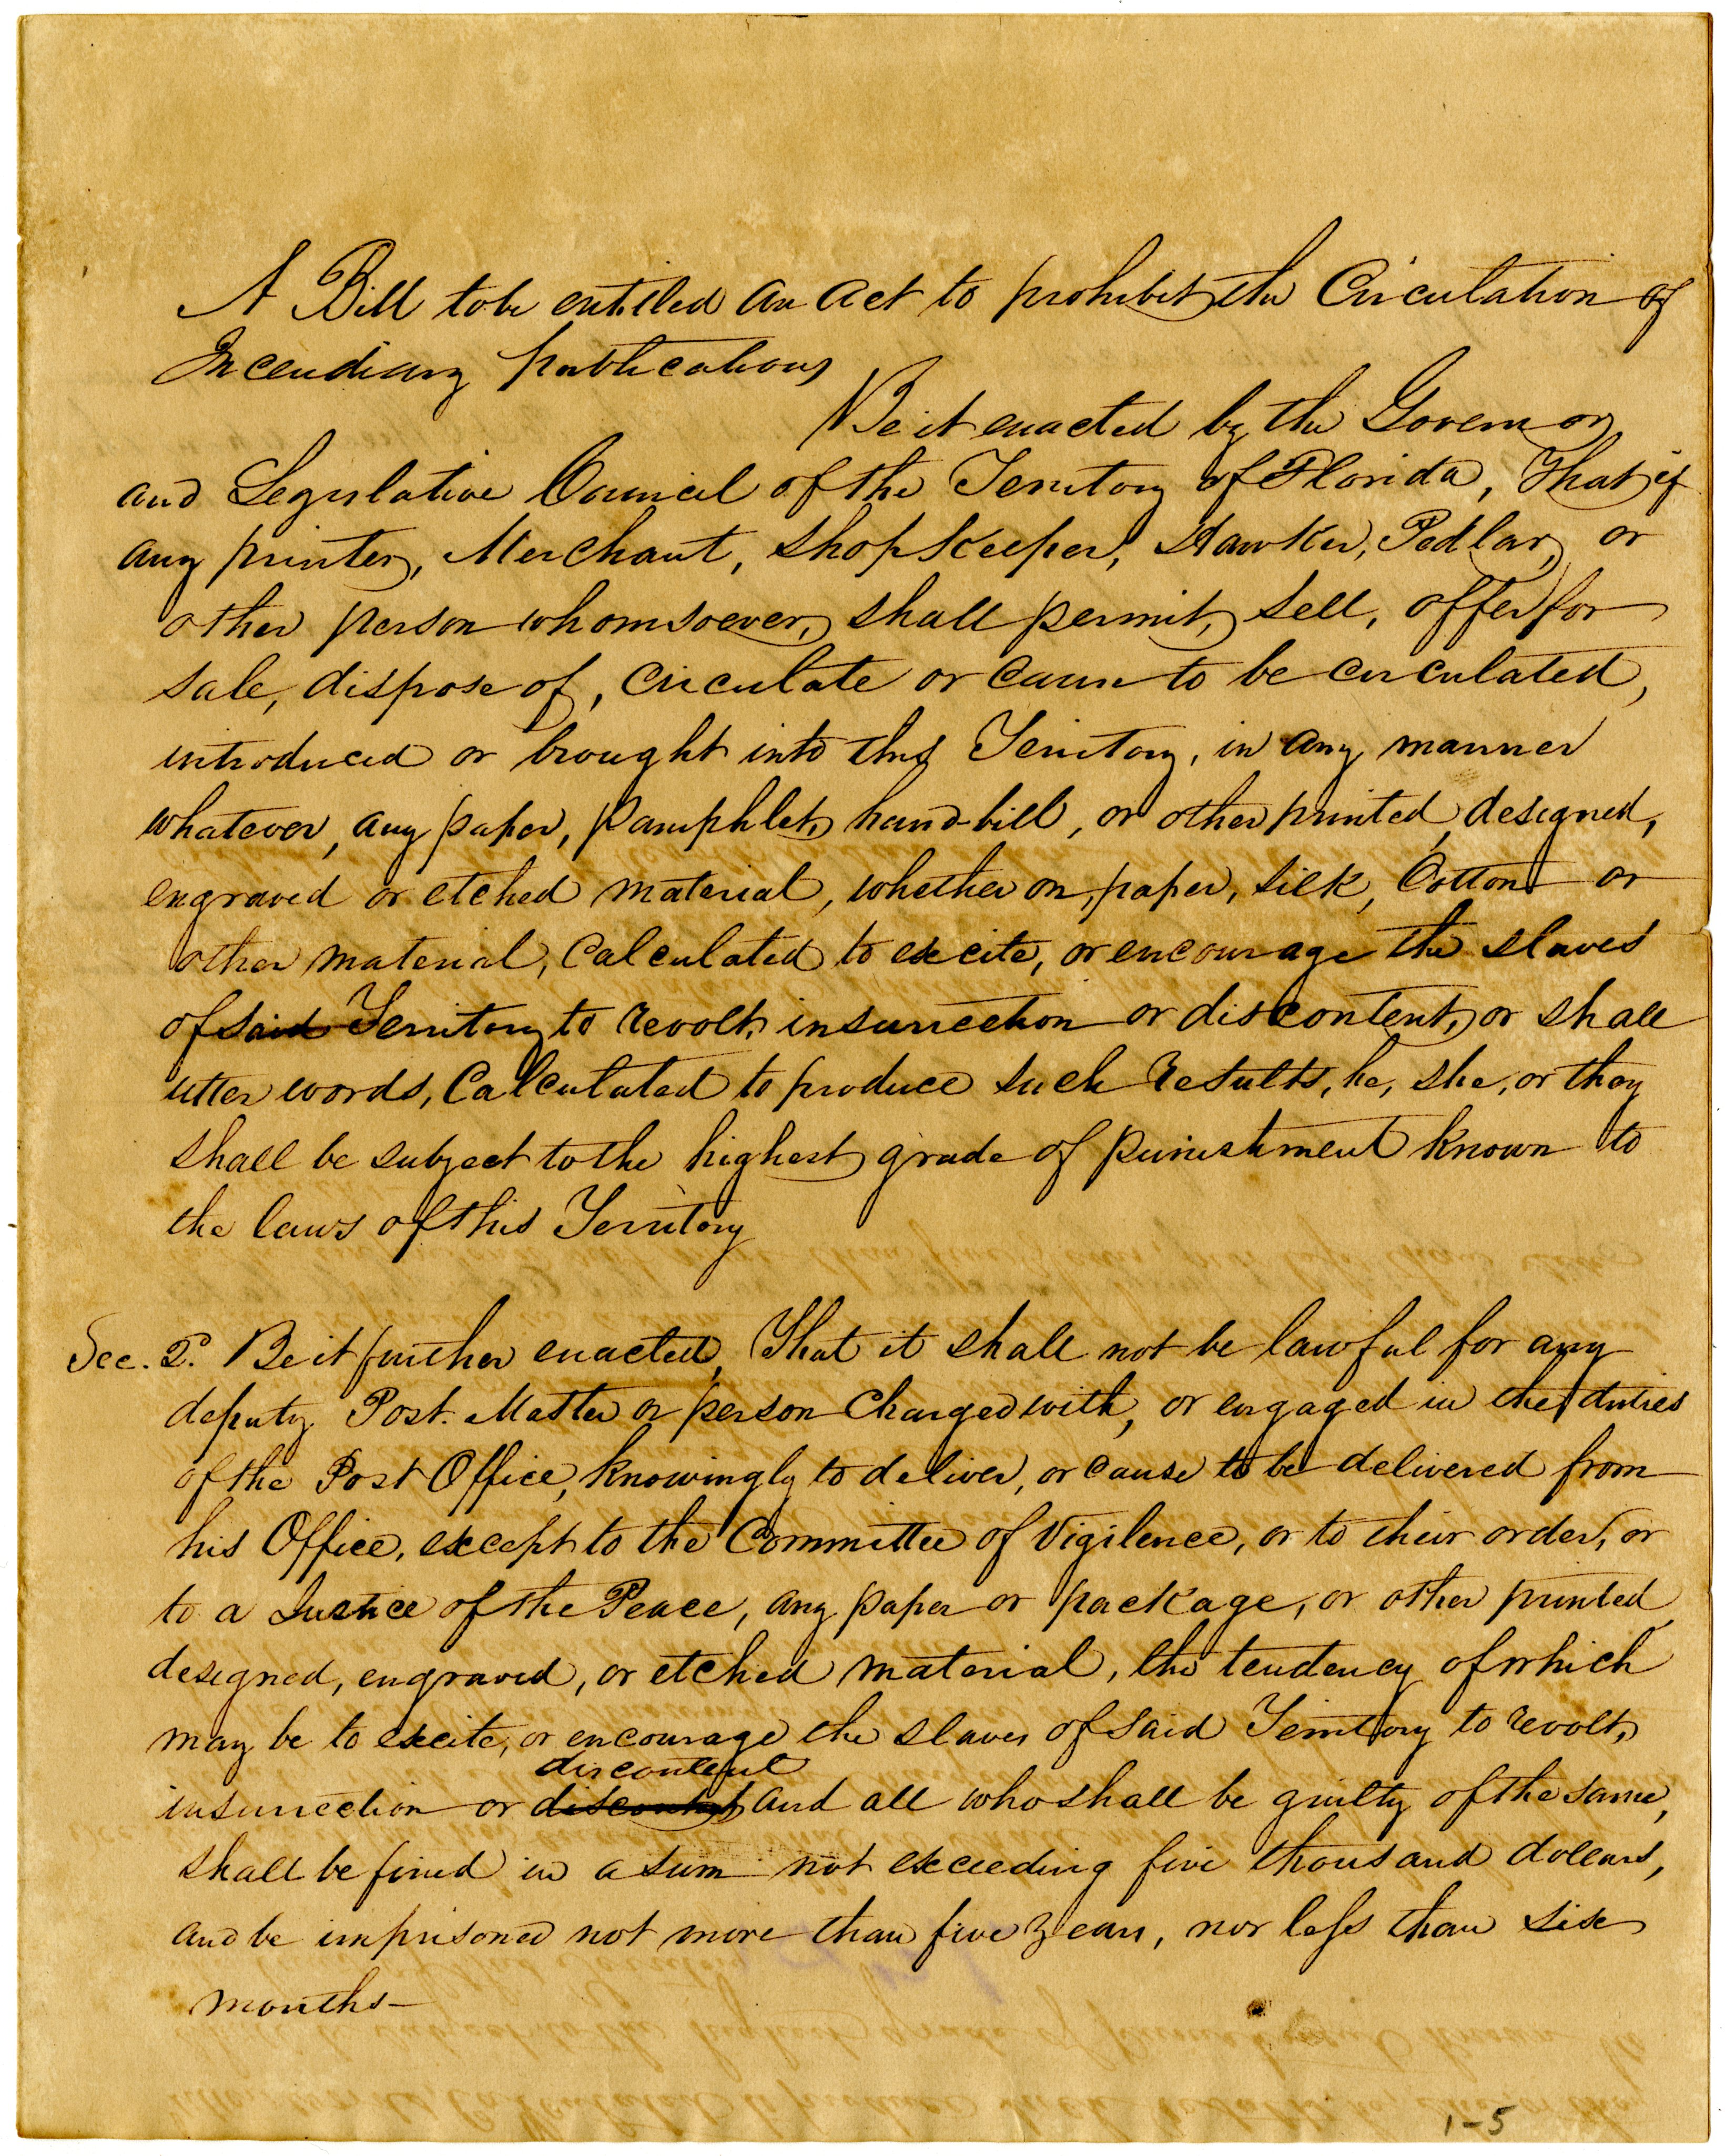 A Bill to be entitled an act to prohibit the Circulation of
Incendiary publications
Be it enacted by the Governor
and Legislative Council of the Territory of Florida, That if
any printer, Merchant, shop Keeper, Hawker, Pedlar, or
other person whomsoever, shall permit, sell, offer for
sale, dispose of, circulate or cause to be circulated,
introduced or brought into this Territory, in any manner
whatever, any paper, pamphlet, hand-bill, or other printed, designed,
engraved or etched material, whether on, paper, silk, Cotton or
other material, calculated to excite, or encourage the slaves
of said Territory to revolt, insurrection or discontent, or shall
utter words, Calculated to produce such results, he, she, or they
shall be subject to the highest grade of punishment known to
the laws of this Territory
Sec. 2. Be it further enacted, That it shall not be lawful for any
deputy Post. Master or person Charged with, or engaged in the duties
of the Post Office, knowingly to deliver, or cause to be delivered from
his Office, except to the Committee of Vigilence, or to their order, or
to a Justice of the Peace, any paper or package, or other printed,
designed, engraved, or etched material, the tendency of which
may be to excite, or encourage the slaves of said Territory to revolt,
discontent
insurrection or and all who shall be guilty of the same,
shall be fined in a sum not exceeding five thousand dollars,
and be imprisoned not more than five years, nor less than six
months-
1-5